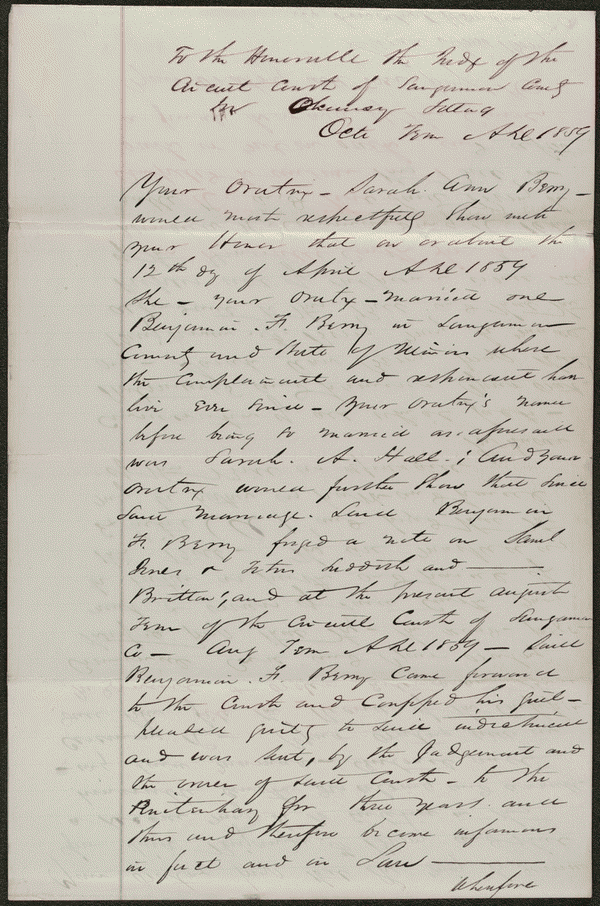 To the Honorable the Judge of the
Circuit Court of Sangamon County
In Chancery Sitting
Octo Term A.D. 1859
Your Oratrix - Sarah Ann Berry -
would most respectfully show unto
your Honor that on or about the
12th day of April A.D. 1859
She - your Oratrix - married one
Benjamin F. Berry in Sangamon
County and State of Illinois where
the complainant and respondent have
live ever since - Your Oratrix's name
before being so married as aforesaid
was Sarah. A. Hall.; And your
Oratrix would further show that since
said marriage. Said Benjamin
F. Berry forged a note on Saml
Jones & and
Britton; and at the present august
Term of the Circuit Court of Sangamon
Co - Aug Term A.D. 1859 - Said
Benjamin. F. Berry came forward
to the Court and Confessed his guilt -
pleaded guilty to said indictment
and was sent, by the Judgement and
the order of said Court - to the
Penitentiary for three years and
thus and therefore become infamous
in fact and in Law
Wherefore